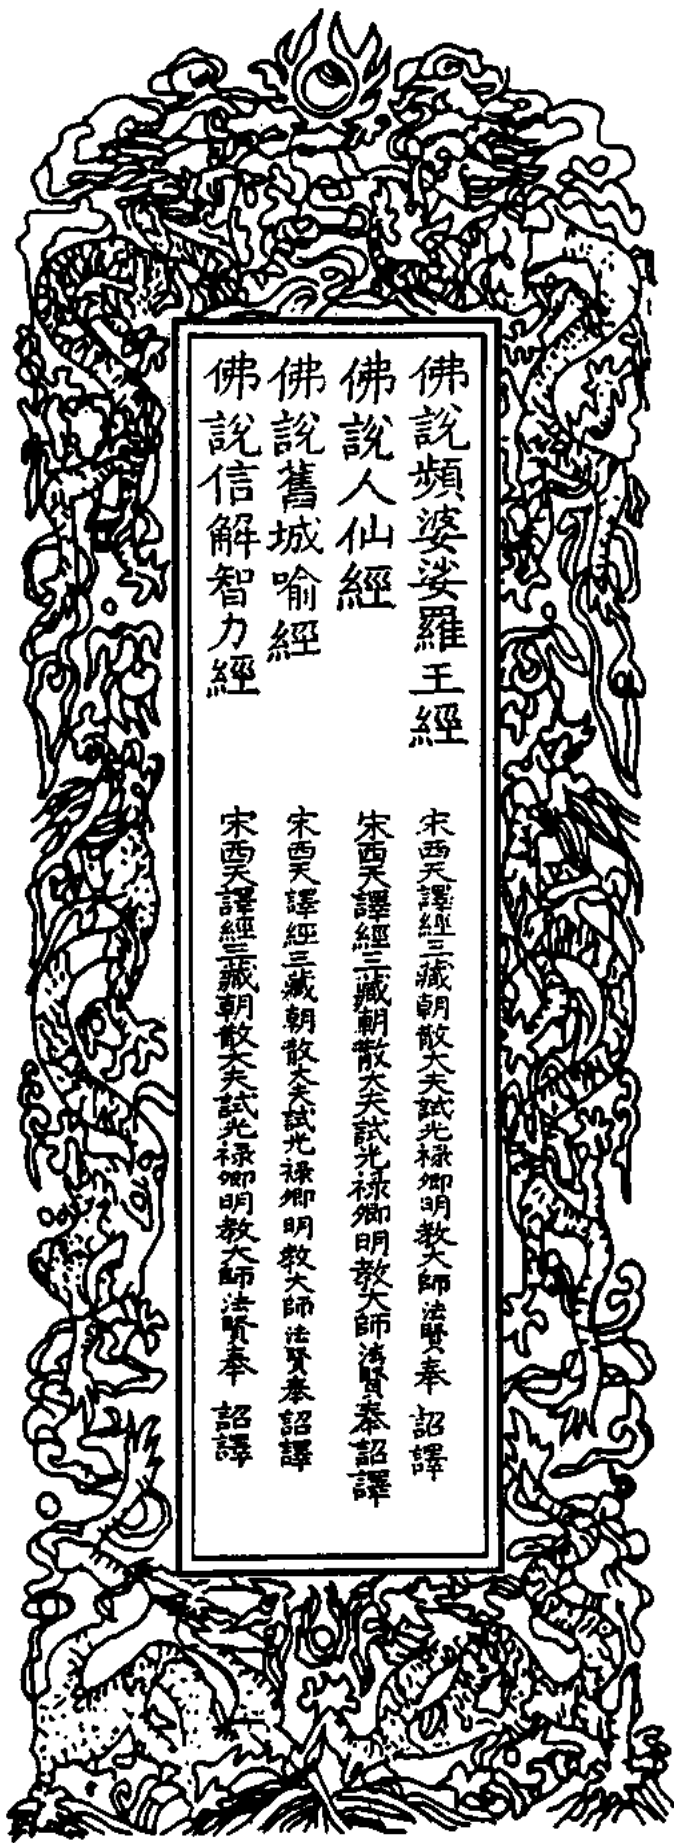 佛說頻婆娑羅王經 宋西天譯經三藏朝散大夫試光祿卿明教大師法賢奉 詔譯
佛說人仙經 宋西天譯經三藏朝散大夫試光祿卿明教大師法賢奉詔譯
佛說舊城喻經 宋西天譯經三藏朝散大夫試光祿卿明教大師法賢奉詔譯
佛說信解智力經 宋西天譯經三藏朝散大夫試光祿卿明教大師法賢奉 詔譯